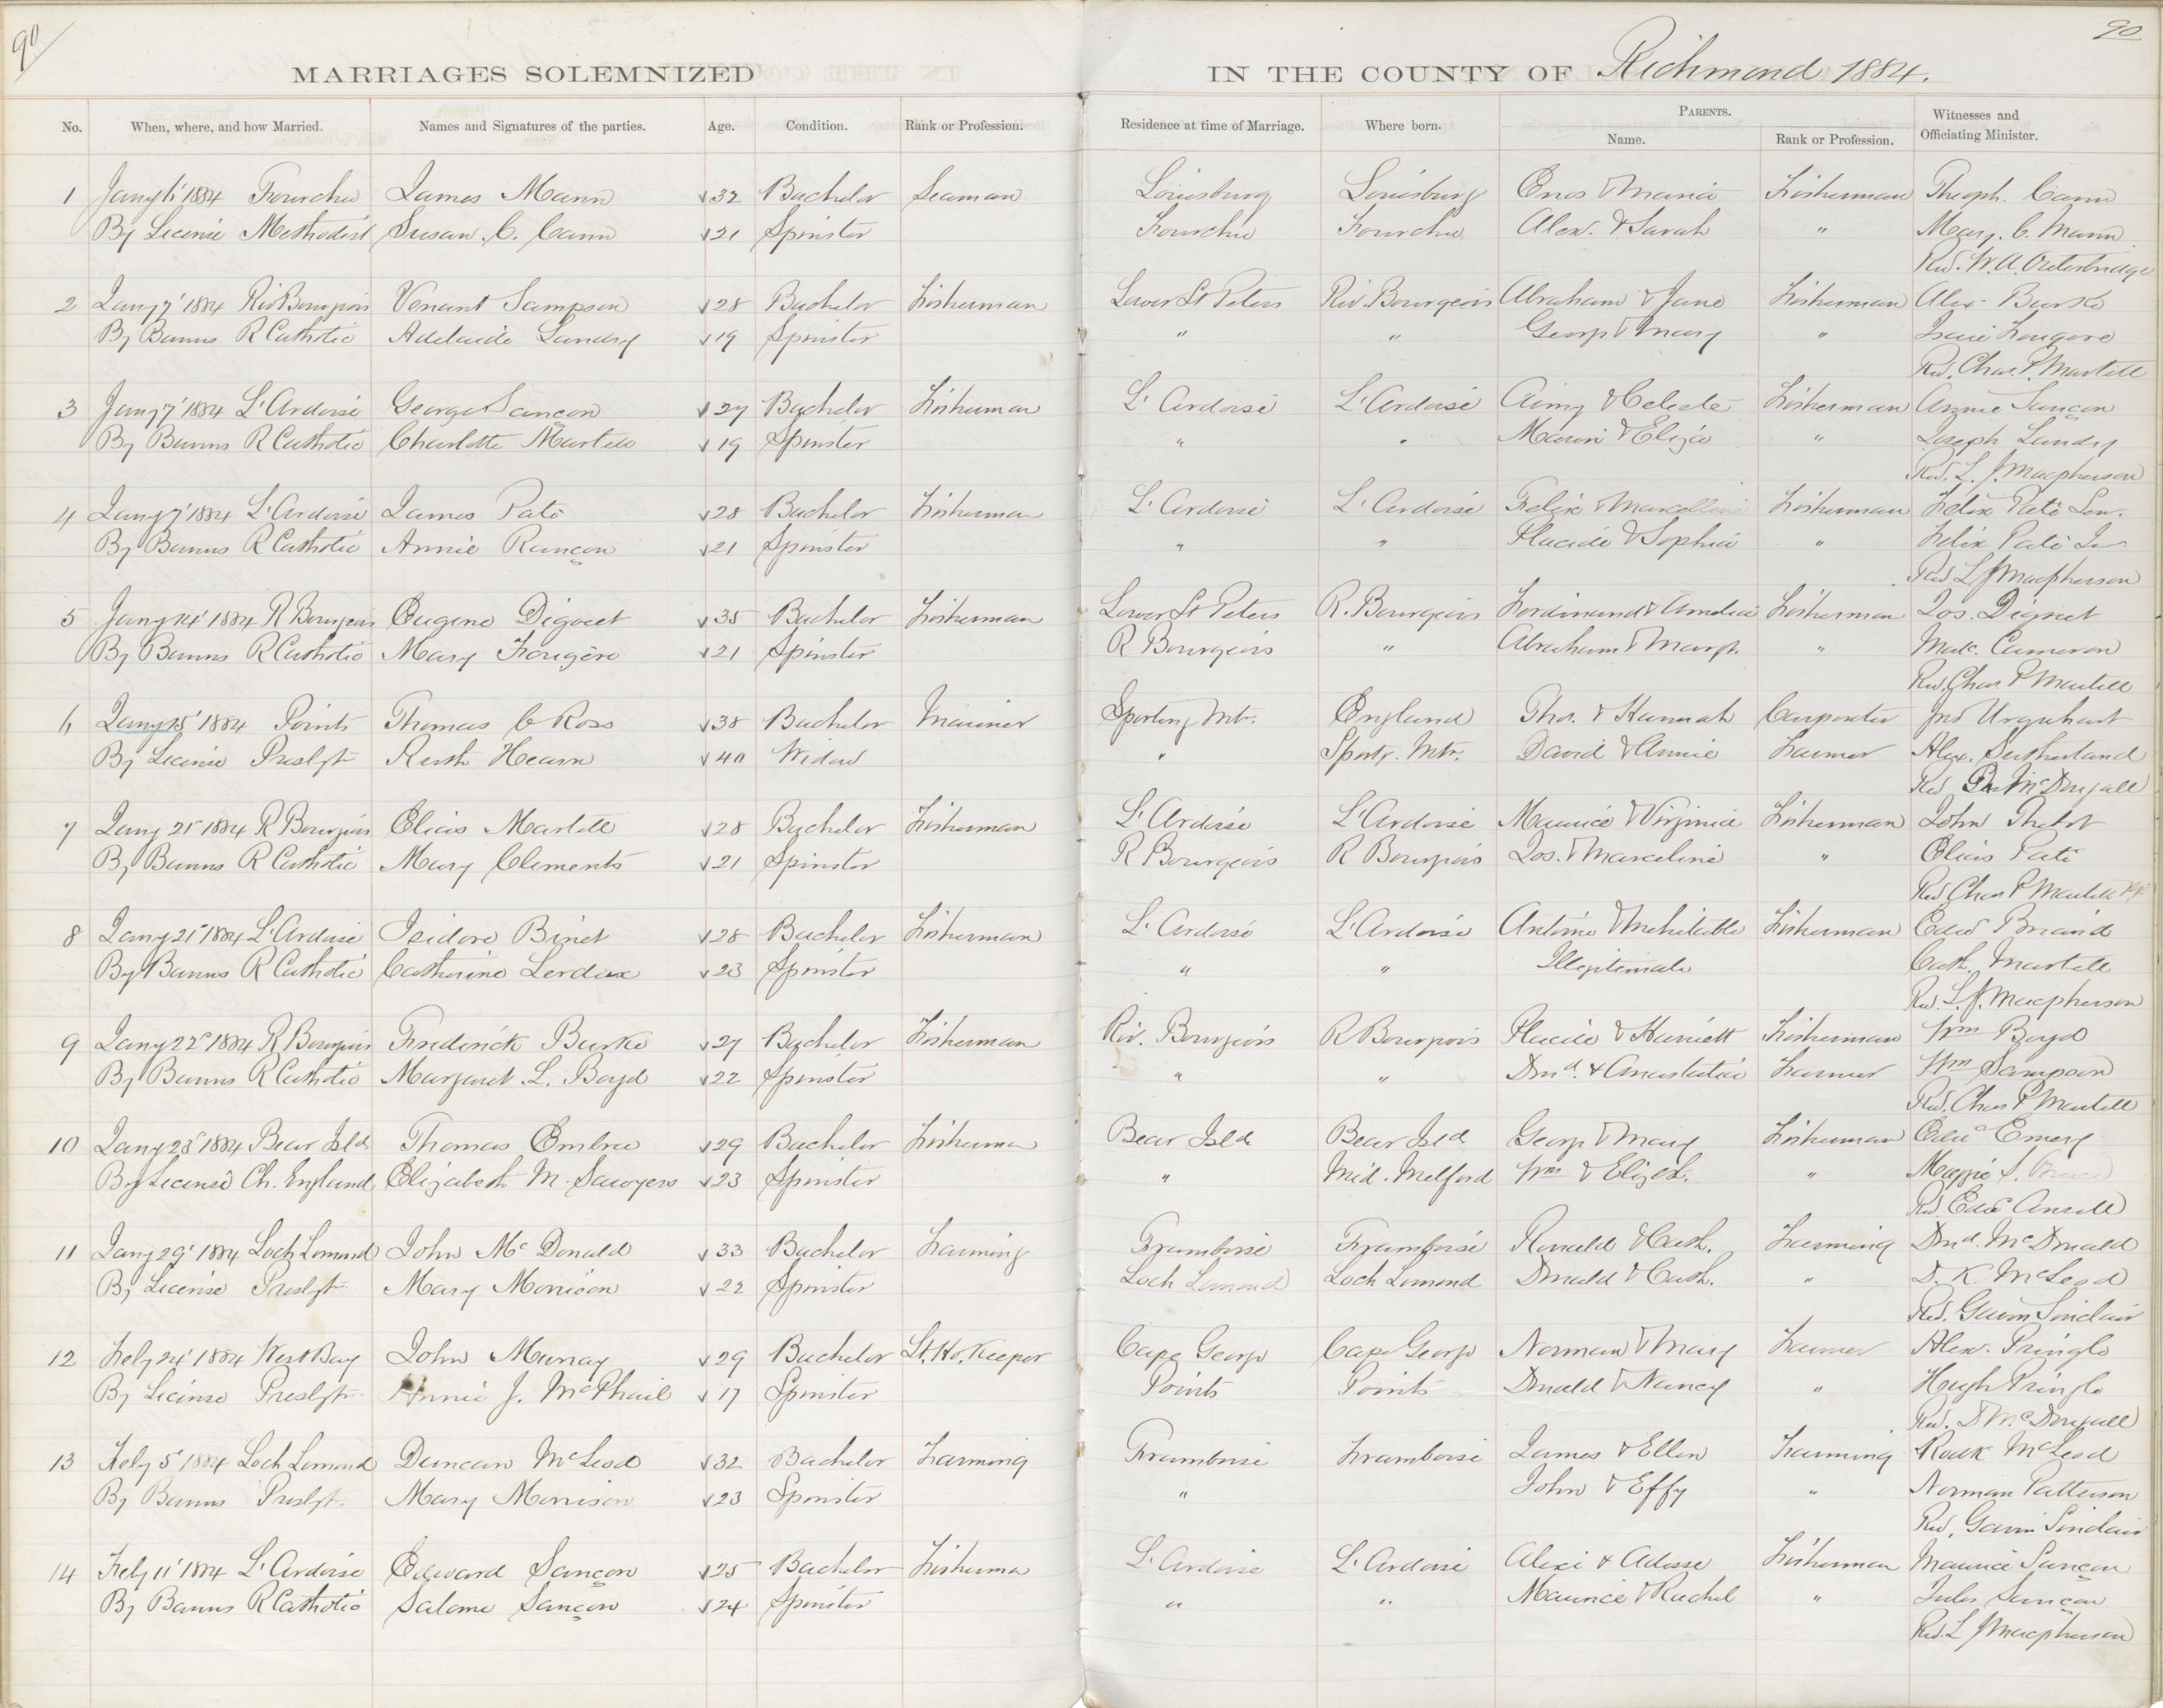 90
90
MARRIAGES SOLEMNIZED IN THE COUNTY OF Richmond 1884.
No. When, where, and how Married. Names and Signatures of the parties. Age. Condition. Rank or Profession. Residence at time of Marriage. Where born. PARENTS. Name. Rank or Profession. Witnesses and Officiating Minister.
1 1884 Fourchu James Mann 32 Bachelor Seaman Louisburg Louisburg Enos & Maria Fisherman Theoph. Cann
By License Methodist Susan C. Cann 21 Spinster Fourchu Fourchu Alex. & Sarah " Mary. C. Mann
Rev. W. A. Outerbridge
2 Jany 7' 1884 Riv Bourgeois Venant Sampson 28 Bachelor Fisherman Lower St Peters Riv. Bourgeois Abraham & Jane Fisherman Alex Burke
By Banns R Catholic Adelaide Landry 19 Spinster " " George & Mary " Isaie Fougere
Rev. Chas. P. Martell
3 Jany 7' 1884 L'Ardoise George Sançon 27 Bachelor Fisherman L'Ardoise L'Ardoise Aimy & Celeste Fisherman Annie Sançon
By Banns R Catholic Charlotte Martell 19 Spinster " " & Eliza " Joseph Landry
Rev. L. J. Macpherson
4 Jany 7' 1884 L'Ardoise James Pate 28 Bachelor Fisherman L'Ardoise L'Ardoise Felix & Marcelline Fisherman Felix Pate Sen.
By Banns R Catholic Annie Rançon 21 Spinster " " Placide & Sophia " Felix Pate Jn
Rev L J Macpherson
5 Jany 14' 1884 R Bourgeois Eugene Digout 35 Bachelor Fisherman Lower St Peters R. Bourgeois Ferdinand & Amelia Fisherman Jos. Digout
By Banns R Catholic Mary Fougère 21 Spinster R Bourgeois " Abraham & Margt. " Malc. Cameron
Rev. Chas P Martell
6 Jany 15' 1884 Points Thomas C Ross 38 Bachelor Mariner Sporting Mtn. England Thos. & Hannah Carpenter Jno Urquhart
By License Presbyt Ruth Hearn 40 Widow " Sportg. Mtn. David & Annie Farmer Alex. Sutherland
Rev McDougall
7 Jany 21' 1884 R Bourgeois Elias Martell 28 Bachelor Fisherman L'Ardoise L'Ardoise Maurice & Virginia Fisherman John Thibot
By Banns R Catholic Mary Clements 21 Spinster R Bourgeois R Bourgeois Jos. & Marceline " Elias Pate
Rev Chas P Martell
8 Jany 21' 1884 L'Ardoise Isidore Binet 28 Bachelor Fisherman L'Ardoise L'Ardoise Antoine & Fisherman Edwd Briand
By Banns R Catholic Catherine Lerdox 23 Spinster " " Illegitimate Cath. Martell
Rev. L J. Macpherson
9 Jany 22' 1884 R Bourgeois Frederick Burke 27 Bachelor Fisherman Riv. Bourgeois R Bourgeois Placide & Harriett Fisherman Wm Boyd
By Banns R Catholic Margaret. L. Boyd 22 Spinster " " Dnd. & Anastatia Farmer Wm Sampson
Rev. Chas P Martell
10 Jany 23' 1884 Bear Isld Thomas Embree 29 Bachelor Fisherman Bear Isld Bear Isld George & Mary Fisherman Emery
By License Ch. England Elizabeth M. Sawyers 23 Spinster " Mid. Melford Wm & Elizth. " Maggie S.
Rev. Edwd Ansell
11 Jany 29' 1884 Loch Lomond John McDonald 33 Bachelor Farming Framboise Framboise Ronald & Cath. Farming Dnd. McDonald
By License Presbyt Mary Morrison 22 Spinster Loch Lomond Loch Lomond Donald & Cath. " D. K. McLeod
Rev. Gavin Sinclair
12 Feby 24' 1884 West Bay John Murray 29 Bachelor Lt. Ho. Keeper Cape George Cape George Norman & Mary Farmer Alex. Pringle
By License Presbyt Annie J. McPhail 17 Spinster Points Points Donald & Nancy " Hugh Pringle
Rev. D McDougall
13 Feby 5' 1884 Loch Lomond Duncan McLeod 32 Bachelor Farming Framboise Framboise James & Ellen Farming Rodk McLeod
By Banns Presbyt. Mary Morrison 23 Spinster " John & Effy " Norman Patterson
Rev. Gavin Sinclair
14 Feby 11' 1884 L'Ardoise Edward Sançon 25 Bachelor Fisherman L'Ardoise L'Ardoise Alexi & Adesse Fisherman Maurice Sançon
By Banns R Catholic Salome Sançon 24 Spinster " " Maurice & Rachel " Jules Sançon
Rev. L J Macpherson